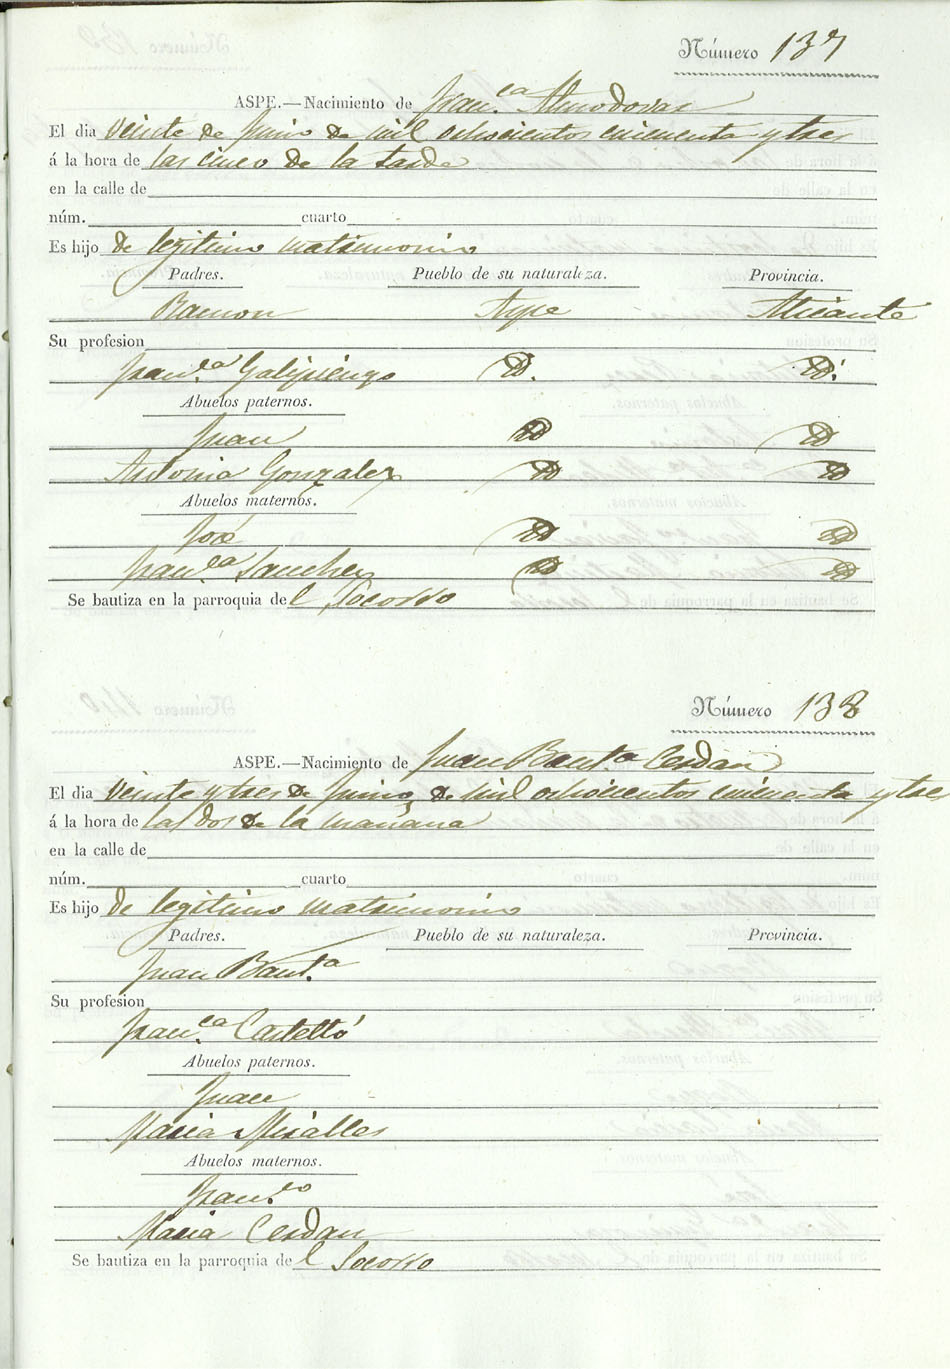 Número 137
ASPE.—Nacimiento de Fran.ca Almodovar
El dia Veinte de Junio de mil ochocientos cincuenta y tres
á la hora de las cinco de la tarde
en la calle de
núm. cuarto
Es hijo de legitimo matrimonio
Padres. Pueblo de su naturaleza. Provincia.
Ramon Aspe Alicante
Su profesion
Fran.ca Galipienzo Yd. Yd.
Abuelos paternos.
Juan Yd Yd
Antonia Gonzalez Yd Yd
Abuelos maternos.
José Yd Yd
Fran.ca Sanchez Yd Yd
Se bautiza en la parroquia del Socorro
Número 138
ASPE.—Nacimiento de Juan Baut.a Cerdan
El dia Veinte y tres de Junio de mil ochocientos cincuenta y tres
á la hora de las dos de la mañana
en la calle de
núm. cuarto
Es hijo de legitimo matrimonio
Padres. Pueblo de su naturaleza. Provincia.
Juan Baut.a
Su profesion
Fran.ca Castelló
Abuelos paternos.
Juan
Maria Miralles
Abuelos maternos.
Fran.co
Maria Cerdan
Se bautiza en la parroquia del Socorro